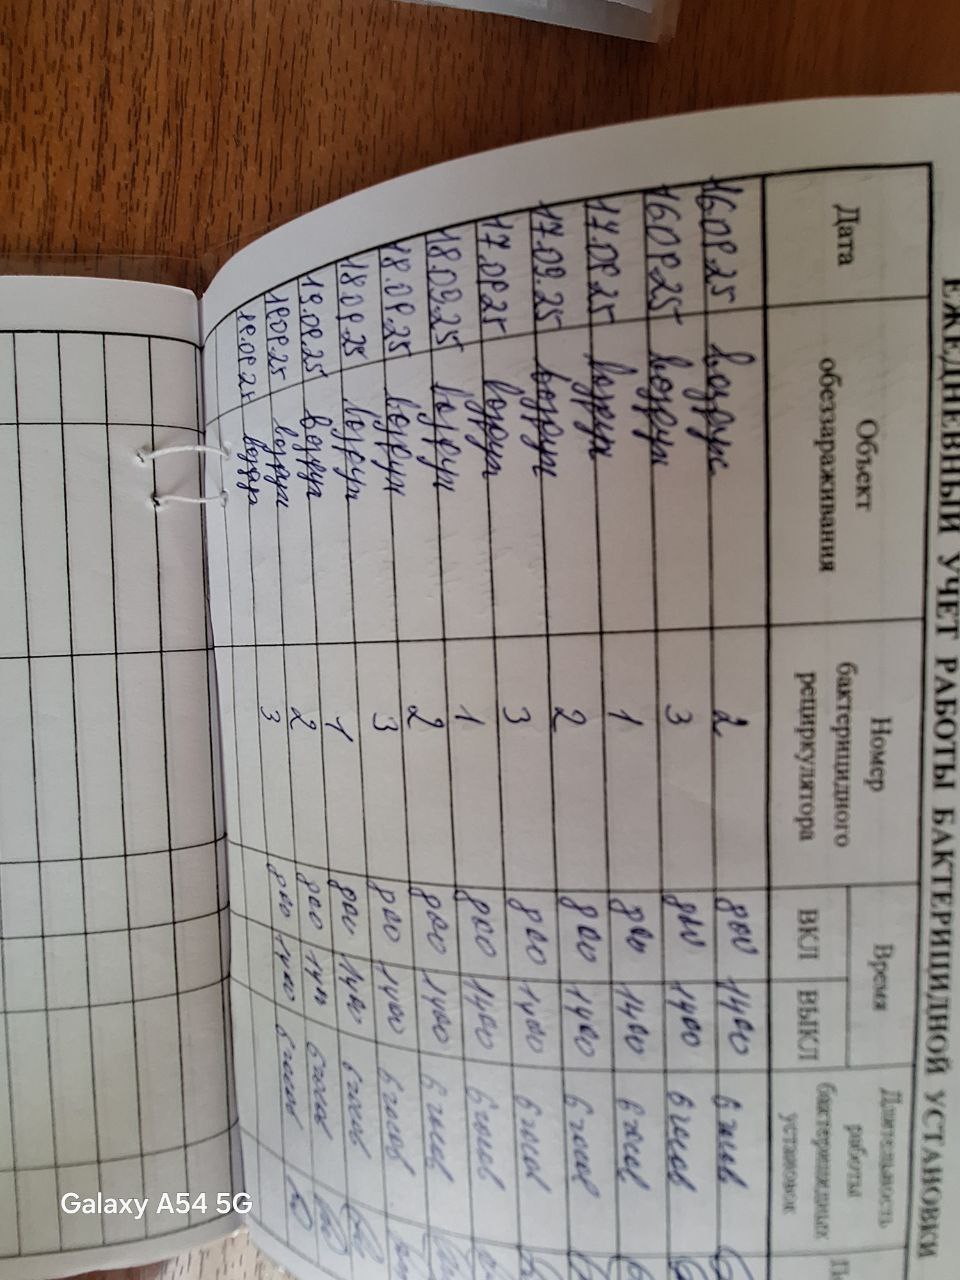 ЕЖЕДНЕВНЫЙ УЧЕТ РАБОТЫ БАКТЕРИЦИДНОЙ УСТАНОВКИ
Дата Объект обеззараживания Номер бактерицидного рециркулятора Время ВКЛ ВЫКЛ Длительность работы бактерицидных установок
16.09.25 воздух 2 800 1400 6 часов
16.09.25 воздух 3 800 1400 6 часов
17.09.25 воздух 1 800 1400 6 часов
17.09.25 воздух 2 800 1400 6 часов
17.09.25 воздух 3 800 1400 6 часов
18.09.25 воздух 1 800 1400 6 часов
18.09.25 воздух 2 800 1400 6 часов
18.09.25 воздух 3 800 1400 6 часов
19.09.25 воздух 1 800 1400 6 часов
19.09.25 воздух 2 800 1400 6 часов
19.09.25 воздух 3 800 1400 6 часов
Galaxy A54 5G